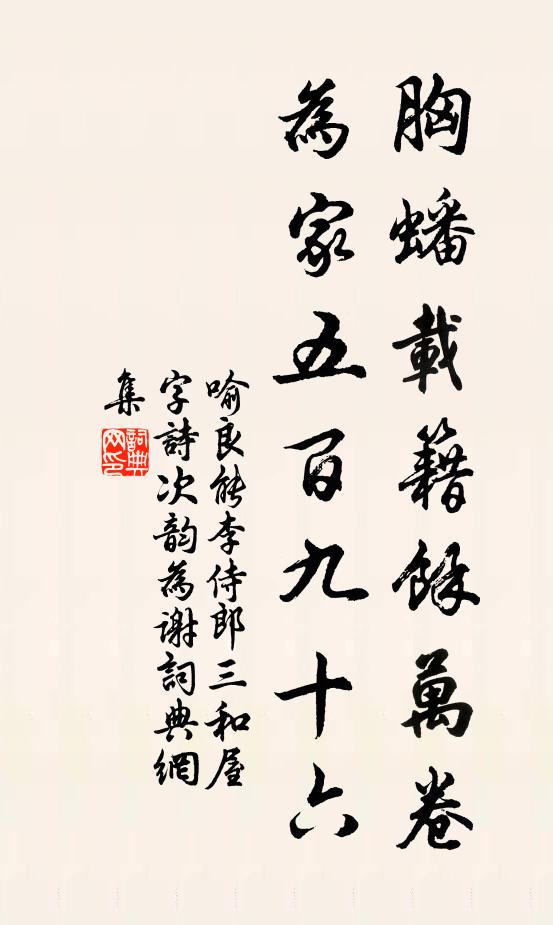 胸蟠載籍餘萬卷
為家五百九十六
喻良能李侍郎三和屋
字詩次韵為謝詞典網
集
詞典
网印